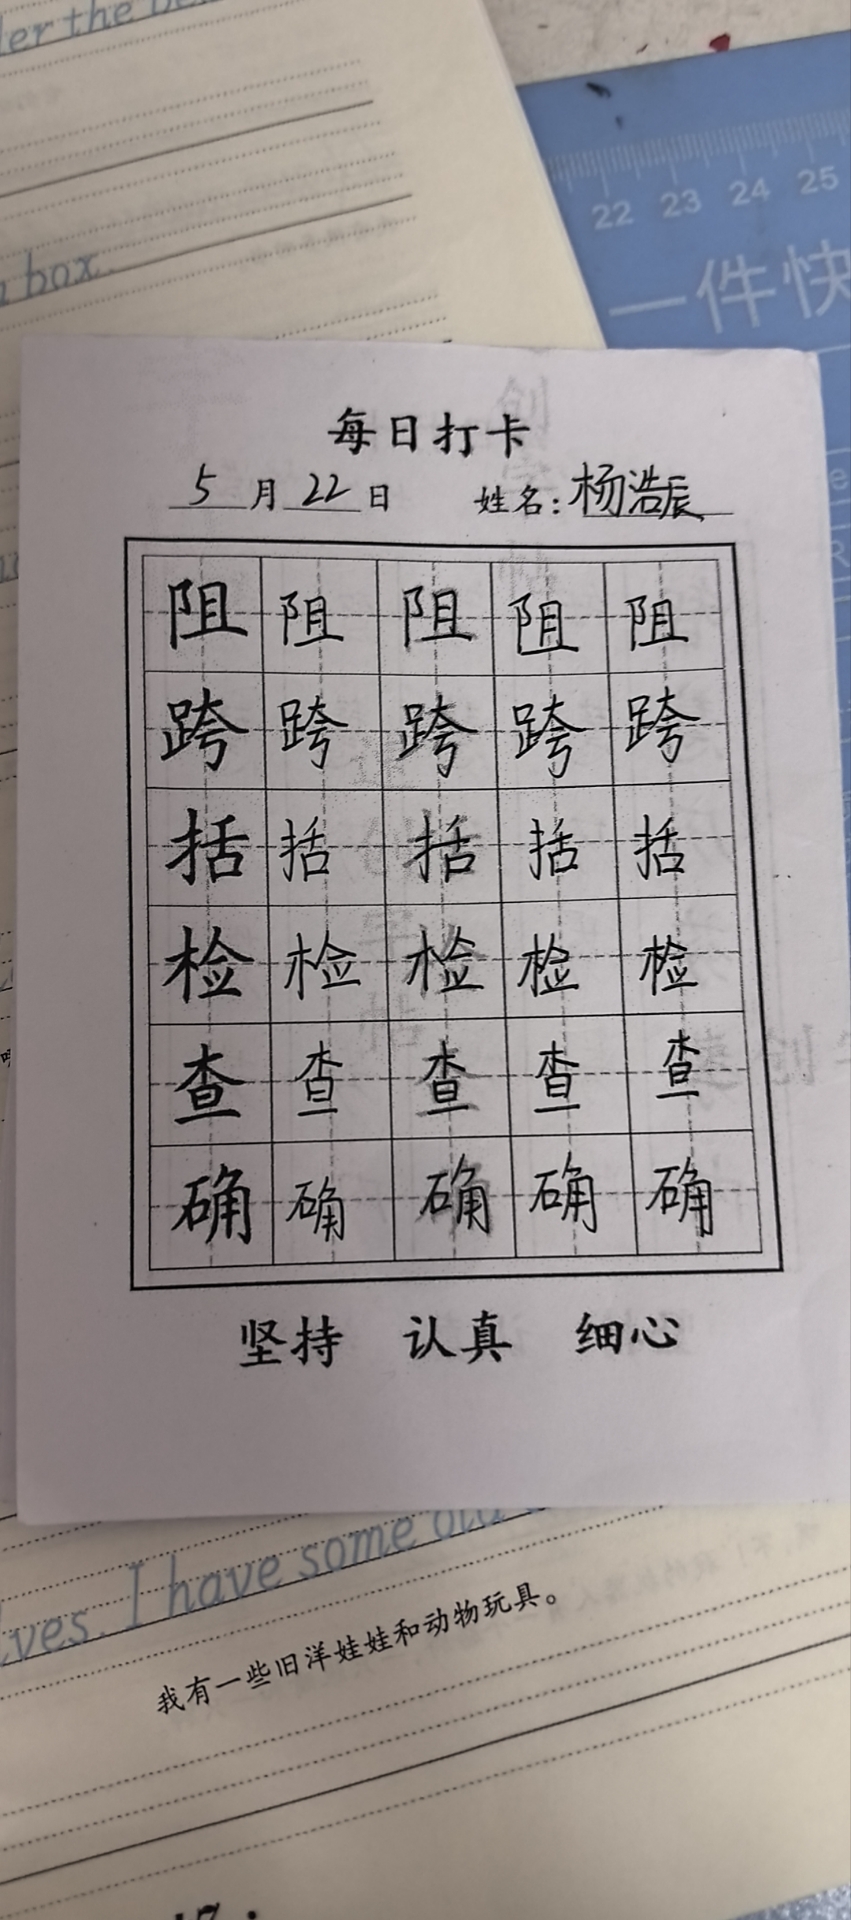 er the
box.
22 23 24 25
一件快
每日打卡
5月22日 姓名：杨浩辰
阻 阻 阻 阻 阻
跨 跨 跨 跨 跨
括 括 括 括 括
检 检 检 检 检
查 查 查 查 查
确 确 确 确 确
坚持 认真 细心
lves. I have some old
我有一些旧洋娃娃和动物玩具。